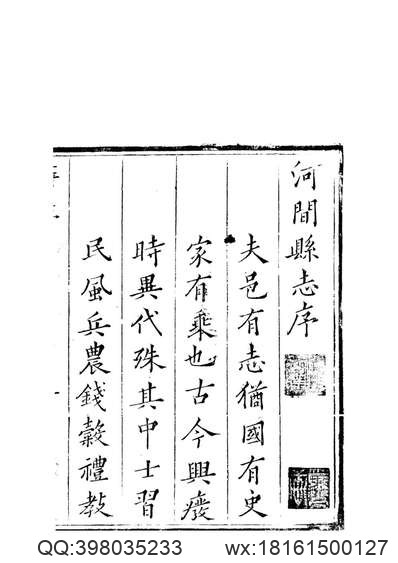 河間縣志序
夫邑有志猶國有史
家有乘也古今興廢
時異代殊其中士習
民風兵農錢穀禮教
QQ:398035233 wx:18161500127